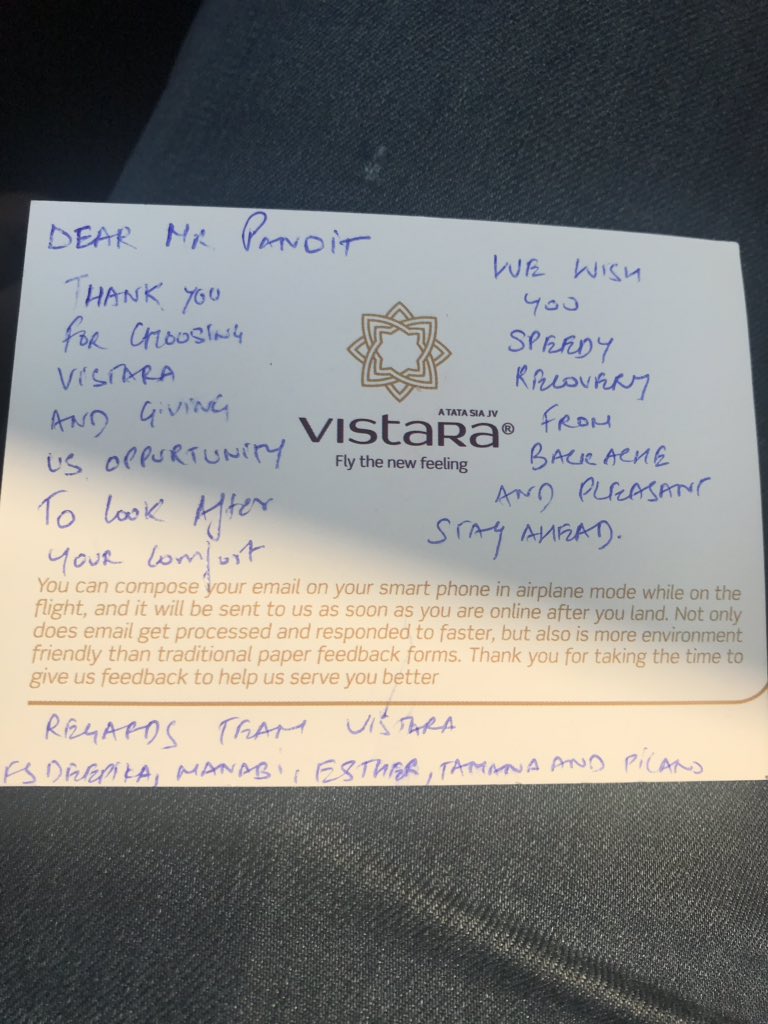 DEAR MR PANDIT
THANK YOU
FOR CHOOSING
VISTARA
AND GIVING
US OPPURTUNITY
To look After
YOUR Comfort
WE WISH
YOU
SPEEDY
RECOVERY
FROM
BACKACHE
AND PLEASANT
STAY AHEAD.
A TATA SIA JV
VISTARA®
Fly the new feeling
You can compose your email on your smart phone in airplane mode while on the
flight, and it will be sent to us as soon as you are online after you land. Not only
does email get processed and responded to faster, but also is more environment
friendly than traditional paper feedback forms. Thank you for taking the time to
give us feedback to help us serve you better
REGARDS TEAM VISTARA
FS DEEPIKA, MANABI, ESTHER, TAMANA AND